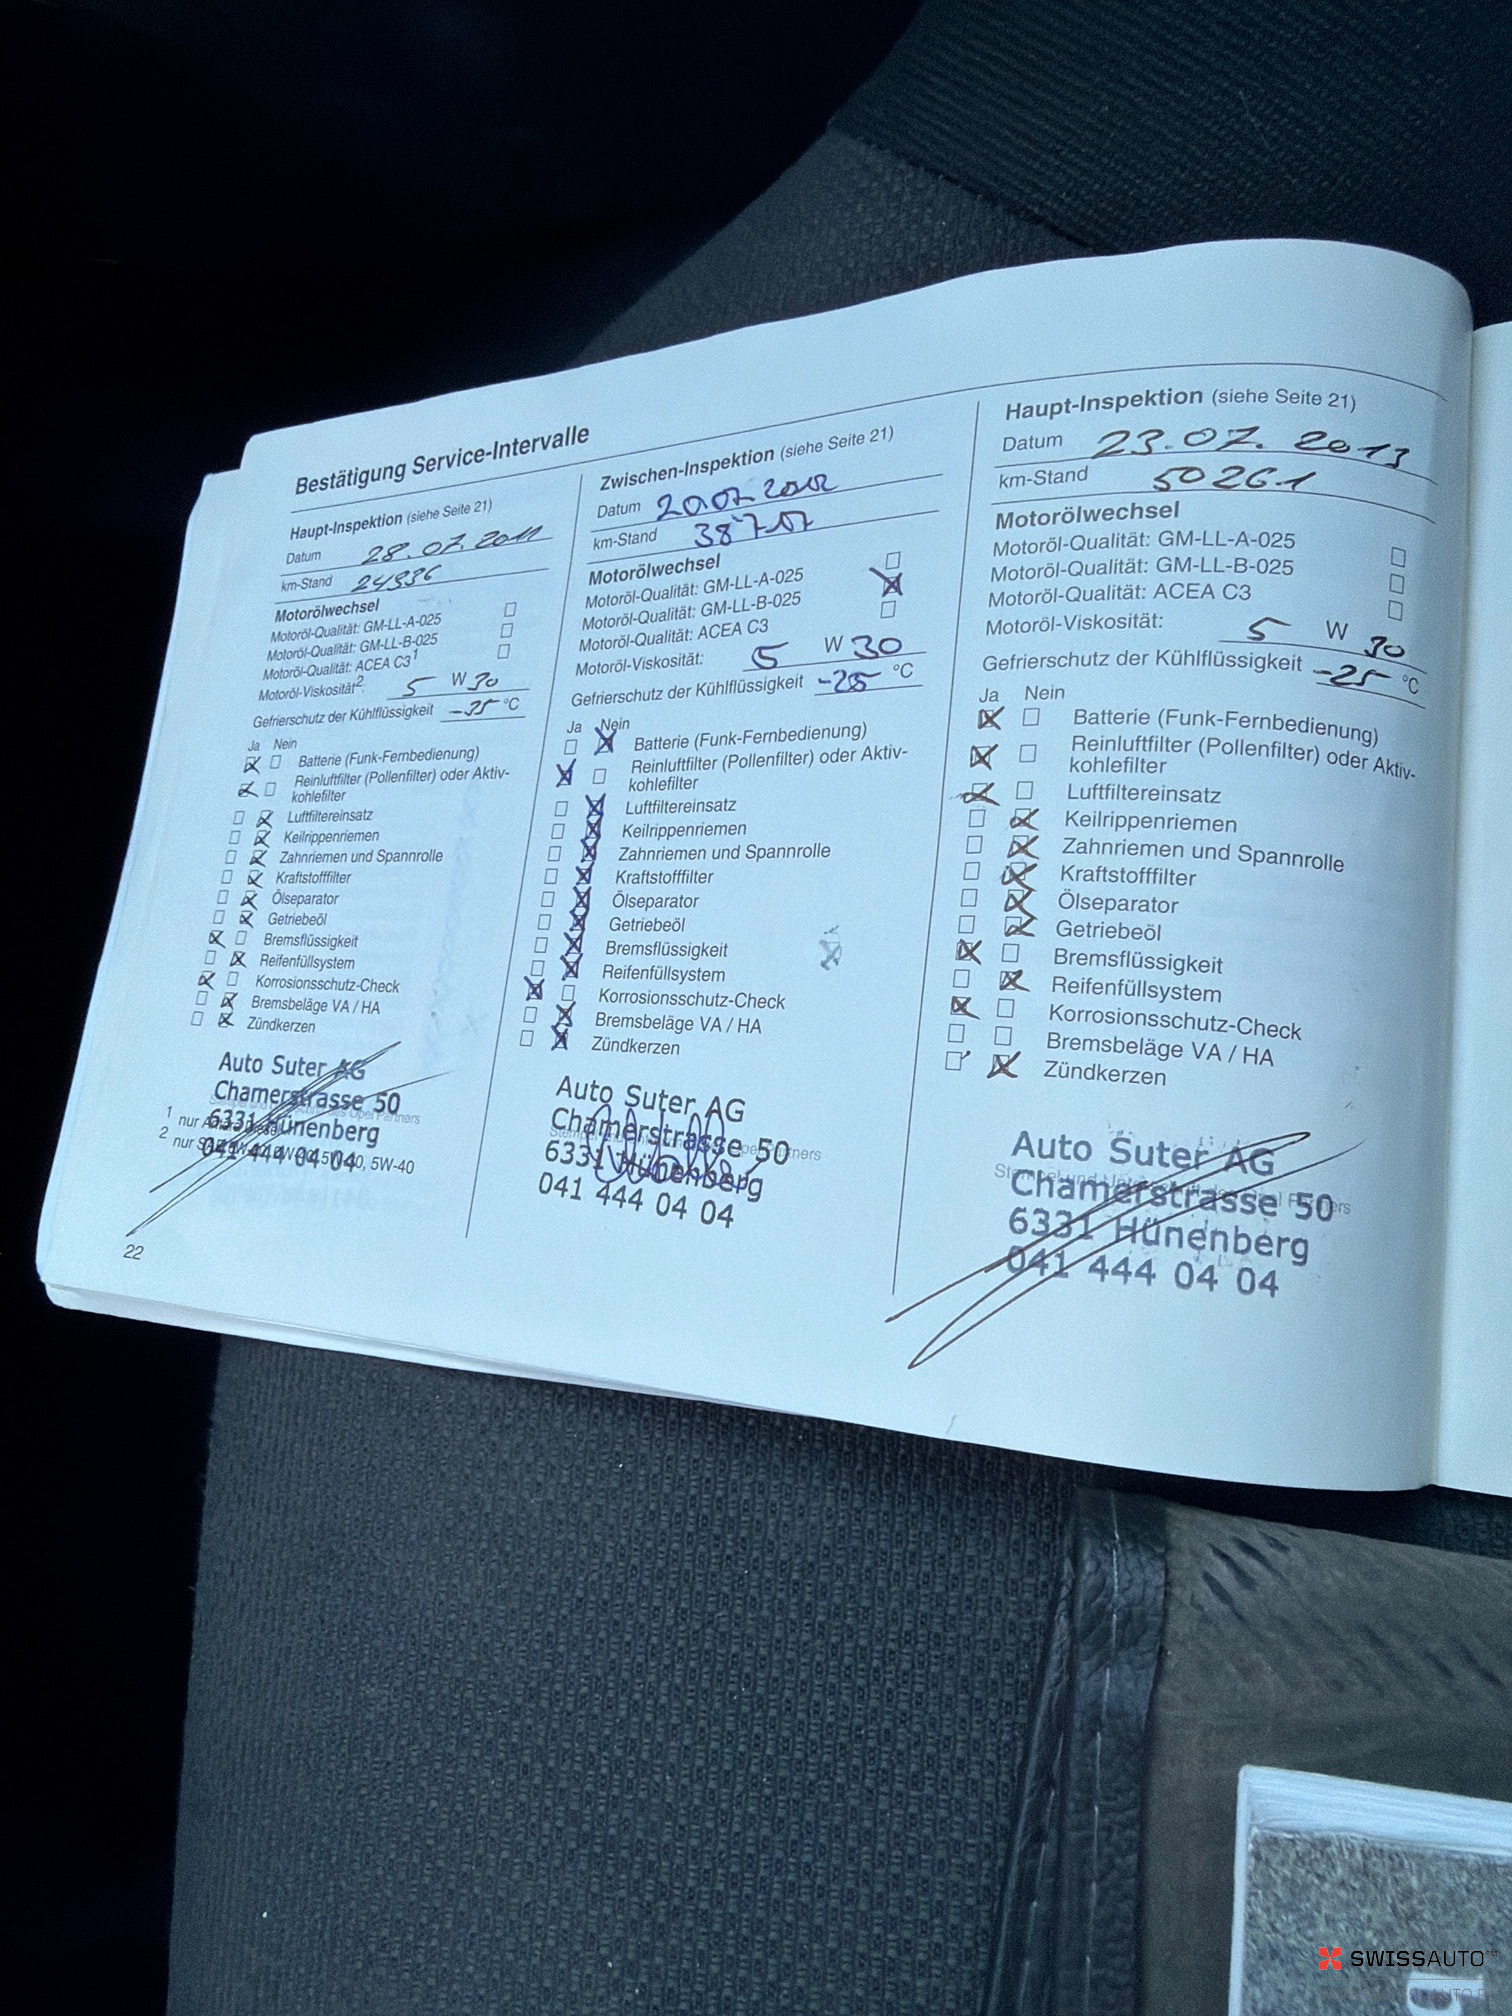 Bestätigung Service-Intervalle
Haupt-Inspektion (siehe Seite 21)
Datum 28.07.2011
km-Stand 24936
Motorölwechsel
Motoröl-Qualität: GM-LL-A-025
Motoröl-Qualität: GM-LL-B-025
Motoröl-Qualität: ACEA C3¹
Motoröl-Viskosität²: 5 W 30
Gefrierschutz der Kühlflüssigkeit -35 °C
Ja Nein
Batterie (Funk-Fernbedienung)
Reinluftfilter (Pollenfilter) oder Aktiv-
kohlefilter
Luftfiltereinsatz
Keilrippenriemen
Zahnriemen und Spannrolle
Kraftstofffilter
Ölseparator
Getriebeöl
Bremsflüssigkeit
Reifenfüllsystem
Korrosionsschutz-Check
Bremsbeläge VA / HA
Zündkerzen
Auto Suter AG
Chamerstrasse 50
6331 Hünenberg
041 444 04 04
1 nur
2 nur 5W-40
22
Zwischen-Inspektion (siehe Seite 21)
Datum 20.07.2012
km-Stand
Motorölwechsel
Motoröl-Qualität: GM-LL-A-025
Motoröl-Qualität: GM-LL-B-025
Motoröl-Qualität: ACEA C3
Motoröl-Viskosität: 5 W 30
Gefrierschutz der Kühlflüssigkeit -25 °C
Ja Nein
Batterie (Funk-Fernbedienung)
Reinluftfilter (Pollenfilter) oder Aktiv-
kohlefilter
Luftfiltereinsatz
Keilrippenriemen
Zahnriemen und Spannrolle
Kraftstofffilter
Ölseparator
Getriebeöl
Bremsflüssigkeit
Reifenfüllsystem
Korrosionsschutz-Check
Bremsbeläge VA / HA
Zündkerzen
Auto Suter AG
Chamerstrasse 50
6331 Hünenberg
041 444 04 04
Haupt-Inspektion (siehe Seite 21)
Datum 23.07.2013
km-Stand 50261
Motorölwechsel
Motoröl-Qualität: GM-LL-A-025
Motoröl-Qualität: GM-LL-B-025
Motoröl-Qualität: ACEA C3
Motoröl-Viskosität: 5 W 30
Gefrierschutz der Kühlflüssigkeit -25 °C
Ja Nein
Batterie (Funk-Fernbedienung)
Reinluftfilter (Pollenfilter) oder Aktiv-
kohlefilter
Luftfiltereinsatz
Keilrippenriemen
Zahnriemen und Spannrolle
Kraftstofffilter
Ölseparator
Getriebeöl
Bremsflüssigkeit
Reifenfüllsystem
Korrosionsschutz-Check
Bremsbeläge VA / HA
Zündkerzen
Auto Suter AG
Chamerstrasse 50
6331 Hünenberg
041 444 04 04
SWISSAUTO